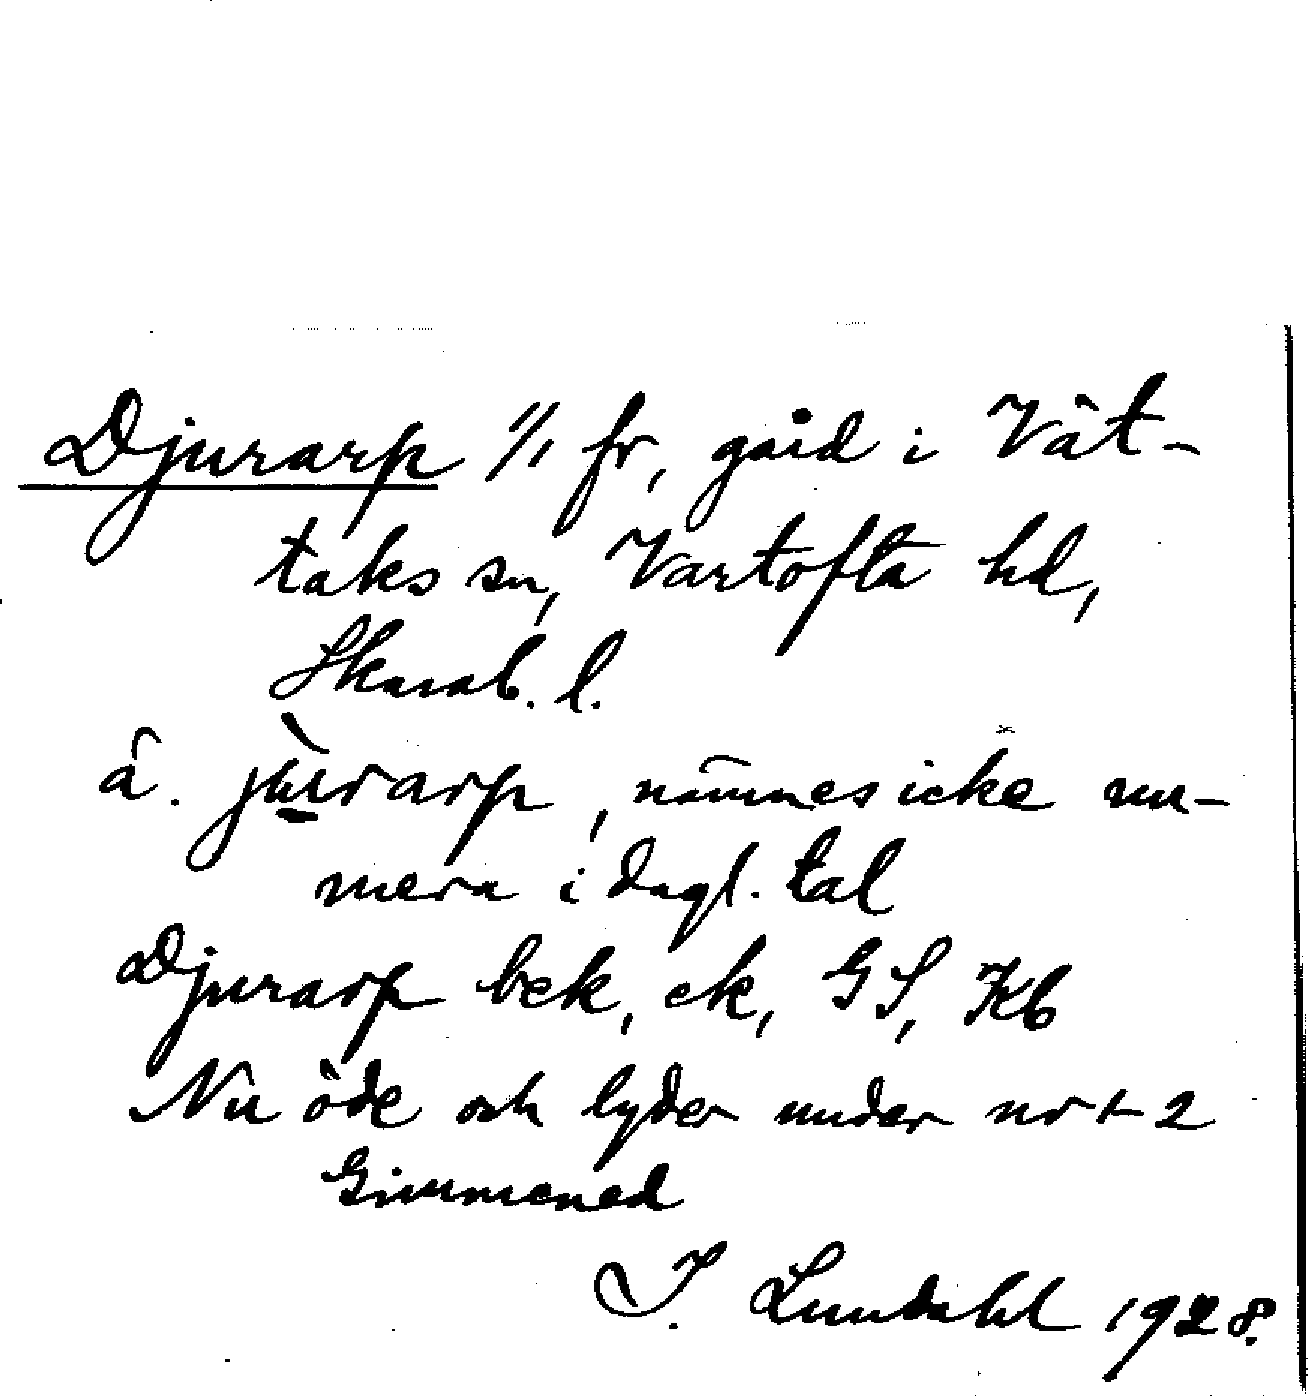 Djurarp 1/1 fr, gård i Vät-
taks sn, Vartofta hd,
Skarab. l.
a. jùrarp, nämnes icke nu-
mera i dagl. tal
Djurarp bek, ek, GS, Kb
Nu öde och lyder under nr 1-2
Gimmened
I. Lundahl 1928.